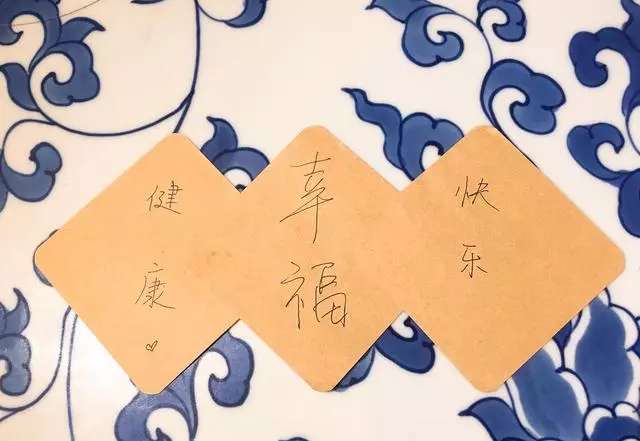 健康♡
幸福
快乐